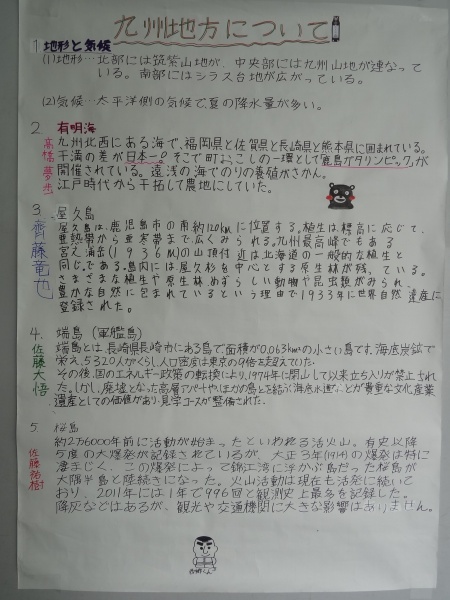 九州地方について
1 地形と気候
(1)地形…北部には筑紫山地が、中央部には九州山地が連なって
いる。南部にはシラス台地が広がっている。
(2)気候…太平洋側の気候で夏の降水量が多い。
2 有明海
高橋夢歩
九州北西にある海で、福岡県と佐賀県と長崎県と熊本県に囲まれている。
干満の差が日本一。そこで町おこしの一環として鹿島ガタリンピックが
開催されている。遠浅の海でのりの養殖がさかん。
江戸時代から干拓して農地にしていた。
3 屋久島
齊藤竜也
屋久島は、鹿児島市の南約120kmに位置する。植生は標高に応じて、
亜熱帯から亜寒帯まで、広くみられる。九州最高峰でもある
宮之浦岳(1936M)の山頂付近は北海道の一般的な植生と
同じである。島内には屋久杉を中心とする原生林が残っている。
さまざまな植生や原生林、めずらしい動物や昆虫類がみられ、
豊かな自然に包まれているという理由で1933年に世界自然遺産に
登録された。
4. 端島(軍艦島)
佐藤大悟
端島とは、長崎県長崎市にある島で面積が0.063km²の小さい島です。海底炭鉱で
栄え、5320人がくらし、人口密度は東京の9倍を超えていた。
その後、国のエネルギー政策の転換により、1974年に閉山して以来立ち入りが禁止され
た。しかし、廃墟となった高層アパートや、ほかの島とを結ぶ海底水道ことが貴重な文化、産業
遺産としての価値があり、見学コースが整備された。
5 桜島
佐藤祐樹
約2万6000年前に活動が始まったといわれる活火山。有史以降
5度の大爆発が記録されているが、大正3年(1914)の爆発は特に
凄まじく、この爆発によって錦江湾に浮かぶ島だった桜島が
大隅半島と陸続きになった。火山活動は現在も活発に続いて
おり、2011年には1年で996回と観測史上最多を記録した。
降灰などはあるが、観光や交通機関に大きな影響はありません。